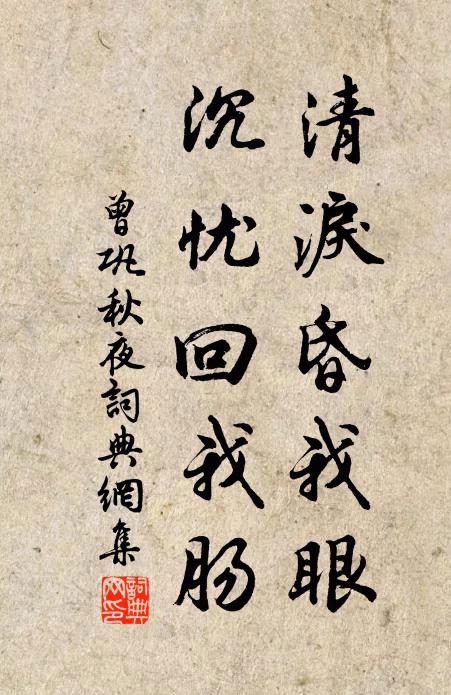 清淚昏我眼
沉忧回我肠
曾巩秋夜詞典網集
詞典網印